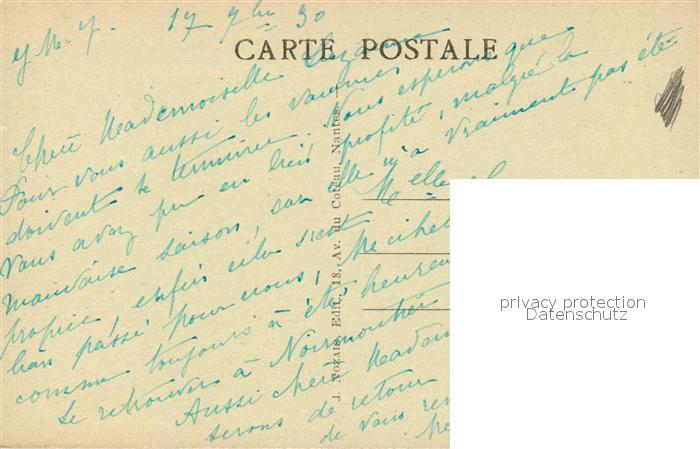 17 7bre 30
CARTE POSTALE
Chère Mademoiselle Suzanne
Pour vous aussi les vacances
doivent se terminer. Nous espérons que
vous avez pu en bien profité, malgré la
mauvaise saison, car elle n'a vraiment pas été
propice, enfin cela s'est
bien passé pour nous, Michel
comme toujours a été heureux
de se retrouver à Noirmoutier
Aussi chère Madem
serons de retour
de vous
J. NOZAIS, Edit., 18, Av. du Coteau, Nantes
privacy protection
Datenschutz